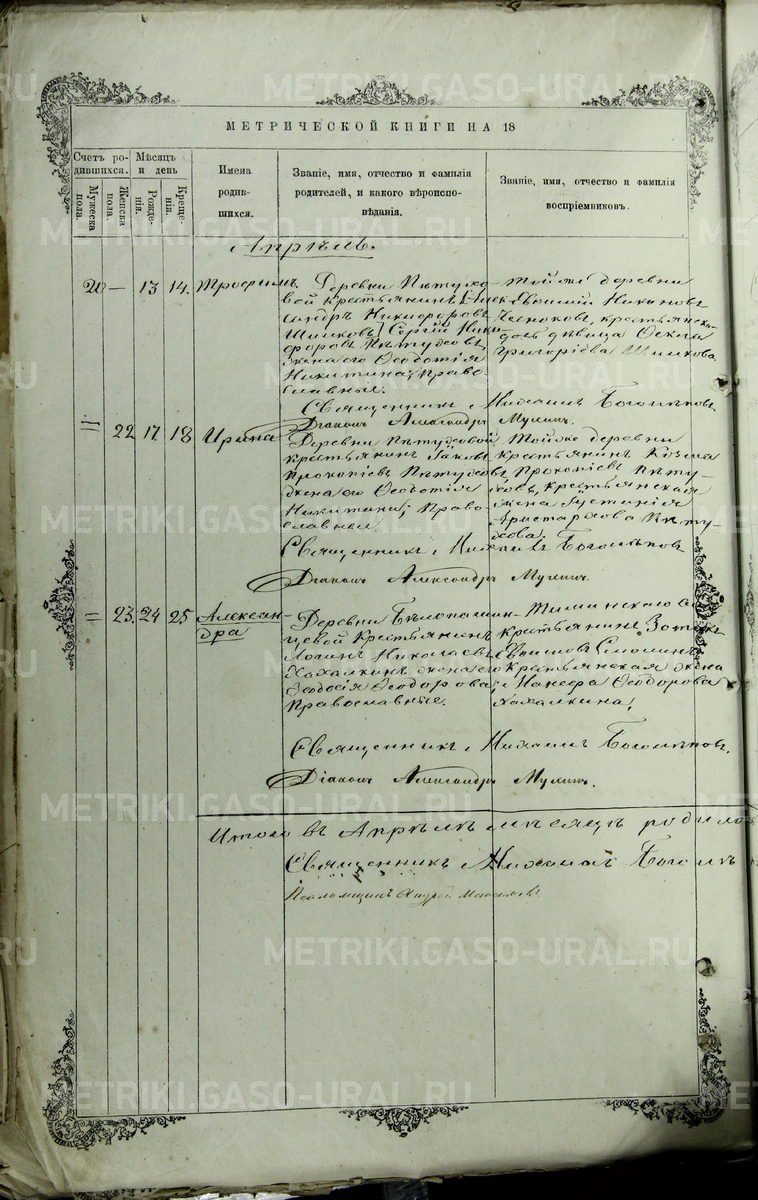 МЕТРИЧЕСКОЙ КНИГИ НА 18
Счетъ ро-
дившихся.
Мужеска
пола.
Женска
пола.
Мѣсяцъ
и день
Рожде-
нія.
Креще-
нія.
Имена
родив-
шихся.
Званіе, имя, отчество и фамилія
родителей, и какого вѣроиспо-
вѣданія.
Званіе, имя, отчество и фамилія
воспріемниковъ.
Апрѣль.
20 — 13 14. Трофимъ.
Деревни Пѣтухо-
вой крестьянинъ
Никифоровъ
Шишковъ] Сергій Ники-
форовъ Пѣтуховъ,
жена его Ѳеодотія
Никитина; Право-
славные.
Той же деревни
Евѳимій
крестьянска-
дочь дѣвица
Григоріева Шишкова.
Священникъ Михаилъ Богоlѣповъ.
Діаконъ Александръ Мулинъ.
= 22 17. 18 Ирина
Деревни Пѣтуховой
крестьянинъ Іаковъ
Прокопіевъ Пѣтуховъ,
жена его Ѳеодотія
Никитина; Право-
славные.
Тойже деревни
крестьянинъ Козма
Прокопіевъ Пѣту-
ховъ, крестьянская
жена Іустинія
Аристархова Пѣту-
хова.
Священникъ Михаилъ Боголѣповъ
Діаконъ Александръ Мулинъ.
= 23. 24 25 Алексан-
дра
Деревни Бѣлопашин-
цевой Крестьянинъ
Логинъ Николаевъ
Хахалкинъ жена его
Ѳеодосія Ѳеодорова;
Православные.
Крестьянинъ Зотикъ
Крестьянская жена
Ѳеодорова
Хахалкина;
Священникъ Михаилъ Боголѣповъ.
Діаконъ Александръ Мулинъ.
Итого въ Апрѣлѣ мѣсяцѣ родило
Священникъ Михаилъ Боголѣ
Псаломщикъ Андрей
METRIKI.GASO-URAL.RU